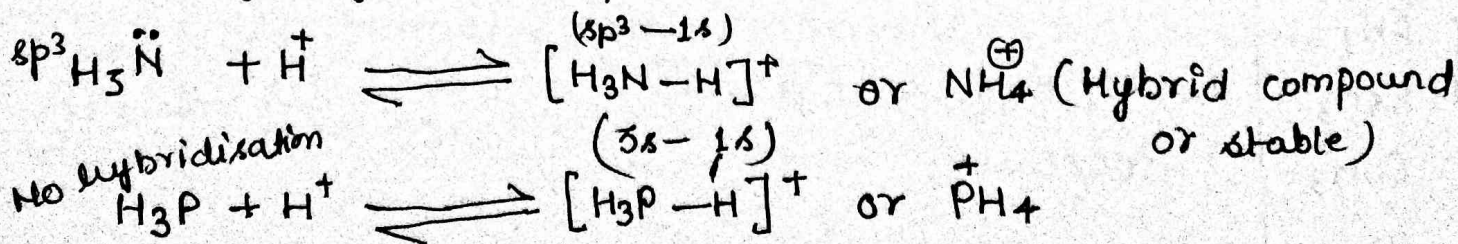 (sp³—1s)
sp³ H₃N̈ + H⁺ ⇌ [H₃N—H]⁺ or NH₄⊕ (Hybrid compound
or stable)
No hybridisation
(3s—1s)
H₃P + H⁺ ⇌ [H₃P—H]⁺ or P⁺H₄